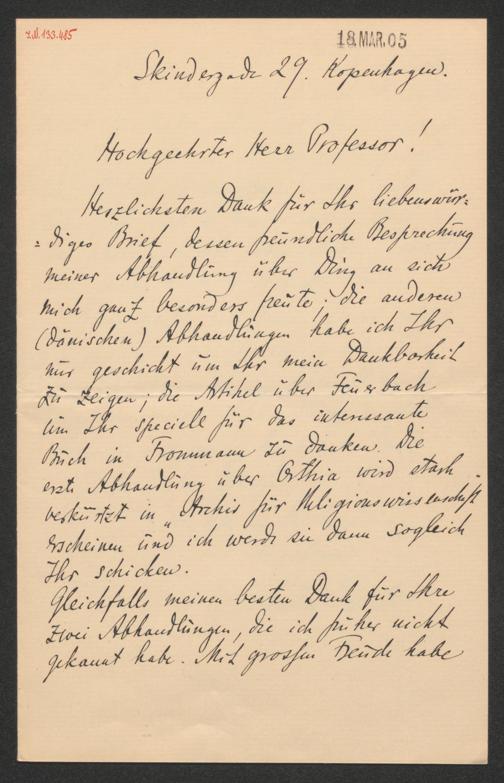 I.N. 133.485
18. MAR. 05
Skindergade 29. Kopenhagen.
Hochgeehrter Herr Professor!
Herzlichsten Dank für Ihr liebenswür=
=diges Brief, dessen freundliche Besprechung
meiner Abhandlung über Ding an sich
mich ganz besonders freute; die anderen
(dänischen) Abhandlungen habe ich Ihr
nur geschickt um Ihr mein Dankbarkeit
zu zeigen; die Artikel über Feuerbach
um Ihr speciell für das interessante
Buch in Frommann zu danken. Die
erste Abhandlung über Orthia wird stark
verkürtzt in "Archiv für Religionswissenschaft"
erscheinen und ich werde sie dann sogleich
Ihr schicken.
Gleichfalls meinen besten Dank für Ihre
zwei Abhandlungen, die ich früher nicht
gekannt habe. Mit grossen Freude habe